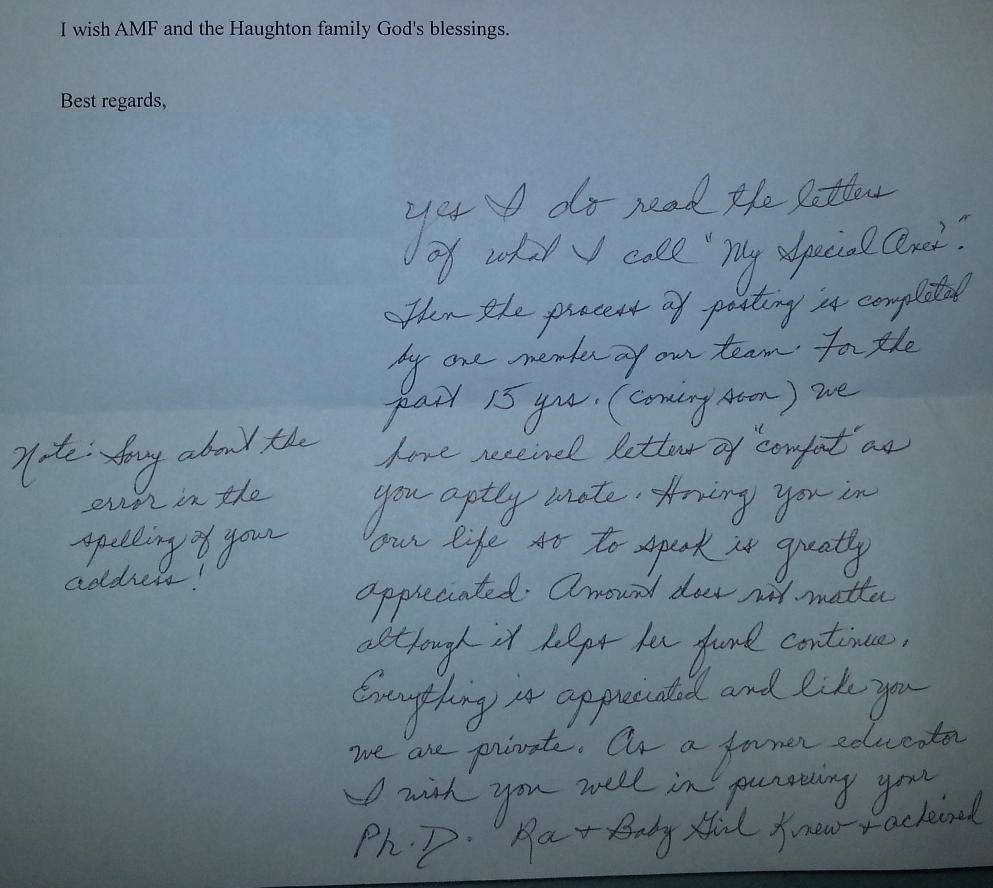 I wish AMF and the Haughton family God's blessings.
Best regards,
yes I do read the letters
of what I call "My Special One's".
Then the process of posting is completed
by one member of our team. For the
past 15 yrs. (coming soon) we
have received letters of "comfort" as
you aptly wrote. Having you in
our life so to speak is greatly
appreciated. Amount does not matter
although it helps her fund continue.
Everything is appreciated and like you
we are private. As a former educator
I wish you well in pursuing your
Ph.D. Ra + Baby Girl Knew + acheived
Note: Sorry about the
error in the
spelling of your
address!